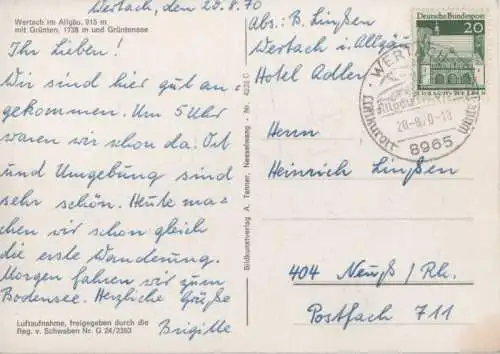 Wertach, den 20.8.70
Wertach im Allgäu, 915 m
mit Grünten, 1738 m und Grüntensee
Ihr Lieben!
Wir sind hier gut an-
gekommen. Um 5 Uhr
waren wir schon da. Ort
und Umgebung sind
sehr schön. Heute ma-
chen wir schon gleich
die erste Wanderung.
Morgen fahren wir zum
Bodensee. Herzliche Grüße
Brigitte
Luftaufnahme, freigegeben durch die
Reg. v. Schwaben Nr. G 24/2363
Bildkunstverlag A. Tanner, Nesselwang - Nr. 4233 C
Abs.: B. Linßen
Wertach i. Allgäu
Hotel Adler
Deutsche Bundespost
20
WERT
20-8.70-18
8965
Herrn
Heinrich Linßen
404 Neuß/Rh.
Postfach 711